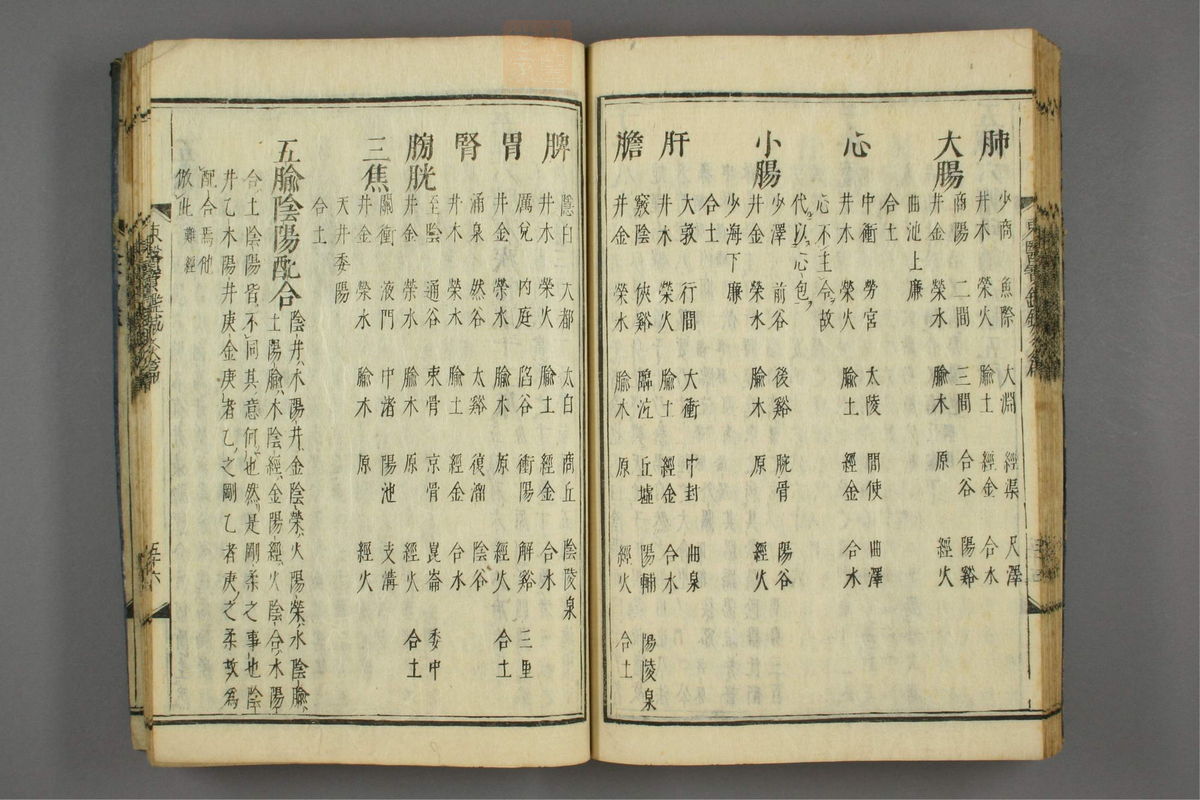 肺 少商 魚際 大淵 經渠 尺澤
井木 榮火 腧土 經金 合水
大腸 商陽 二間 三間 合谷 陽谿
井金 榮水 腧木 原 經火
曲池上廉
合土
心 中衝 勞宮 太陵 間使 曲澤
井木 榮火 腧土 經金 合水
心不主令故
代以心包
小腸 少澤 前谷 後谿 腕骨 陽谷
井金 榮水 腧木 原 經火
少海下廉
合土
肝 大敦 行間 大衝 中封 曲泉
井木 榮火 腧土 經金 合水
膽 竅陰 俠谿 臨泣 丘墟 陽輔 陽陵泉
井金 榮水 腧木 原 經火 合土
脾 隱白 大都 太白 商丘 陰陵泉
井木 榮火 腧土 經金 合水
胃 厲兌 內庭 陷谷 衝陽 解谿 三里
井金 榮水 腧木 原 經火 合土
腎 涌泉 然谷 太谿 復溜 陰谷
井木 榮火 腧土 經金 合水
膀胱 至陰 通谷 束骨 京骨 崑崙 委中
井金 榮水 腧木 原 經火 合土
三焦 關衝 液門 中渚 陽池 支溝
井金 榮水 腧木 原 經火
天井委陽
合土
五腧陰陽配合 陰井木陽井金陰榮火陽榮水陰腧
土陽腧木陰經金陽經火陰合水陽
合土陰陽皆不同其意何也然是剛柔之事也陰
井乙木陽井庚金庚者乙之剛乙者庚之柔故爲
配合焉他
倣此 難經